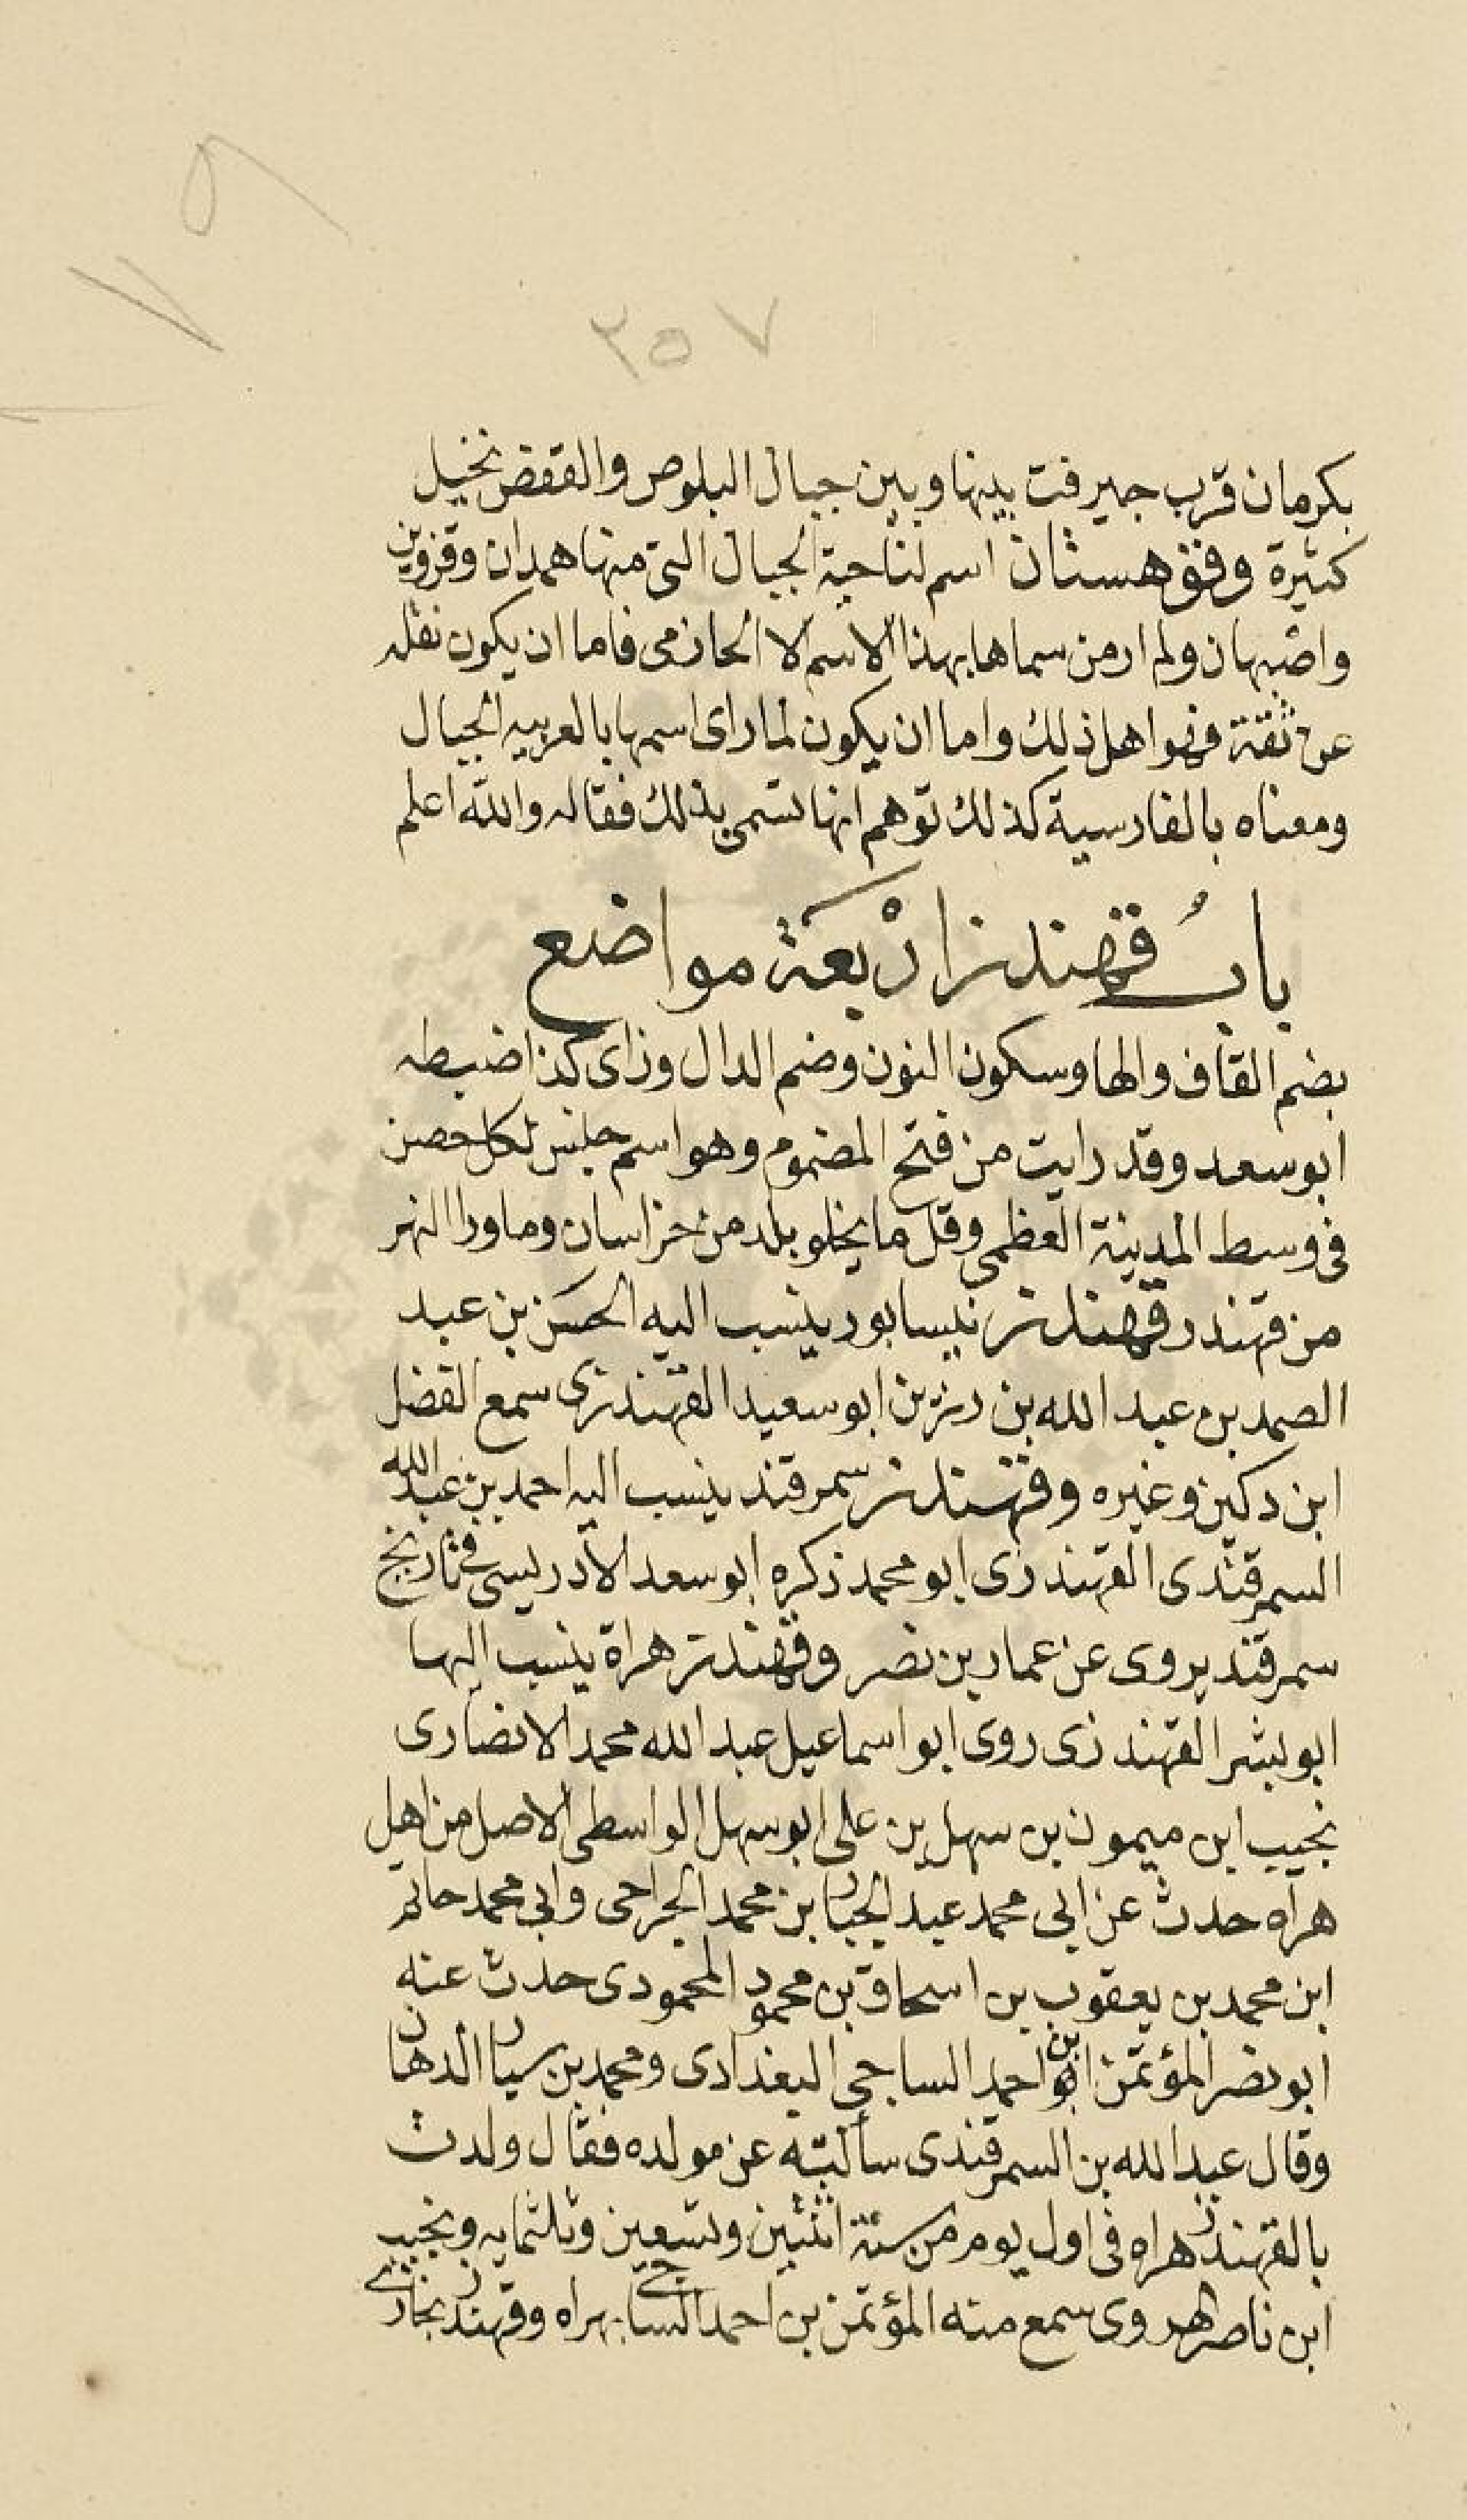 ٢٥٧
بكرمان قرب جيرفت بينها وبين جبال البلوص والقفص نخيل
كثيرة وقوهستان اسم لناحية الجبال التى منها همدان وقزوين
واصبهان ولم ار من سماها بهذا الاسم الا الحازمى فاما ان يكون نقله
عن ثقة فهو اهل ذلك واما ان يكون لما راى اسمها بالعربيه الجبال
ومعناه بالفارسية كذلك توهم انها تسمى بذلك فقاله والله اعلم
باب قهندز اربعة مواضع
بضم القاف والها وسكون النون وضم الدال وزاى كذا ضبطه
ابو سعد وقد رايت من فتح المضموم وهو اسم جنس لكل حصن
فى وسط المدينة العظمى وقل ما يخلو بلد من خراسان وما ورا النهر
من قهندز وقهندز نيسابور ينسب اليه الحسن بن عبد
الصمد بن عبد الله بن رزين ابو سعيد القهندزى سمع الفضل
ابن دكين وغيره وقهندز سمرقند ينسب اليه احمد بن عبد الله
السمرقندى القهندزى ابو محمد ذكره ابو سعد الادريسى فى تاريخ
سمرقند يروى عن عمار بن نصر وقهندز هراة ينسب اليها
ابو بشر القهندزى روى ابو اسماعيل عبد الله محمد الانصارى
نجيب ابن ميمون بن سهل بن على ابو سهل الواسطى الاصل من اهل
هراه حدث عن ابى محمد عبد الجبار بن محمد الجراحى وابى محمد حاتم
ابن محمد بن يعقوب بن اسحاق بن محمود المحمودى حدث عنه
ابو نصر المؤتمن بن احمد الساجى البغدادى ومحمد بن سيار الدهان
وقال عبد الله بن السمرقندى سألته عن مولده فقال ولدت
بالقهندز هراه فى اول يوم من سنة اثنتين وتسعين وثلثمايه ونجيب
ابن ناصر الهروى سمع منه المؤتمن بن احمد الساجى بهراه وقهندز بخارى